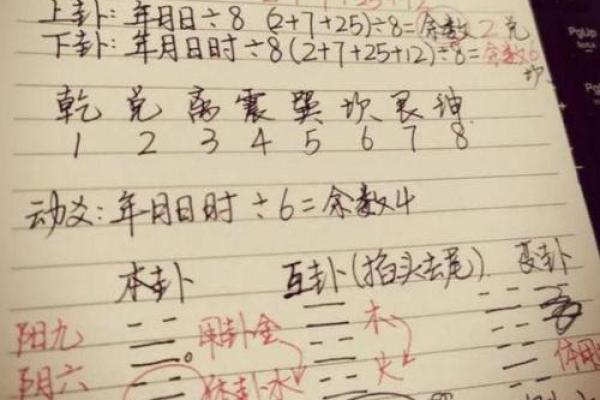 上卦：年月日÷8 (2+7+25)÷8=余数2 兑
下卦：年月日时÷8(2+7+25+12)÷8=余数6
坎
乾 兑 离 震 巽 坎 艮 坤
1 2 3 4 5 6 7 8
动爻：年月日时÷6=余数4
本卦 互卦(掐头去尾) 变卦
阳九 用卦金 木
阴六 体卦水 火 体用
PgUp